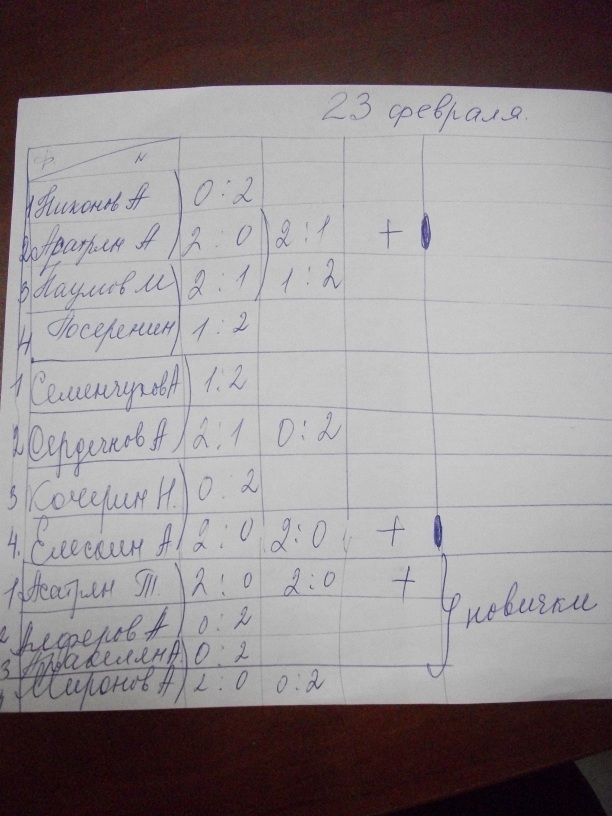 23 февраля.
ф. н
1 Никонов А 0:2
2 Асатрян А 2:0 2:1 +
3 Наумов М 2:1 1:2
4 Посеренин 1:2
1 Семенчуков А 1:2
2 Сердечнов А 2:1 0:2
3 Кочерин Н. 0:2
4. Елескин А 2:0 2:0 +
1. Асатрян Т. 2:0 2:0 + новички
2 Алферов А 0:2
3 Аракелян А 0:2
Миронов А 2:0 0:2